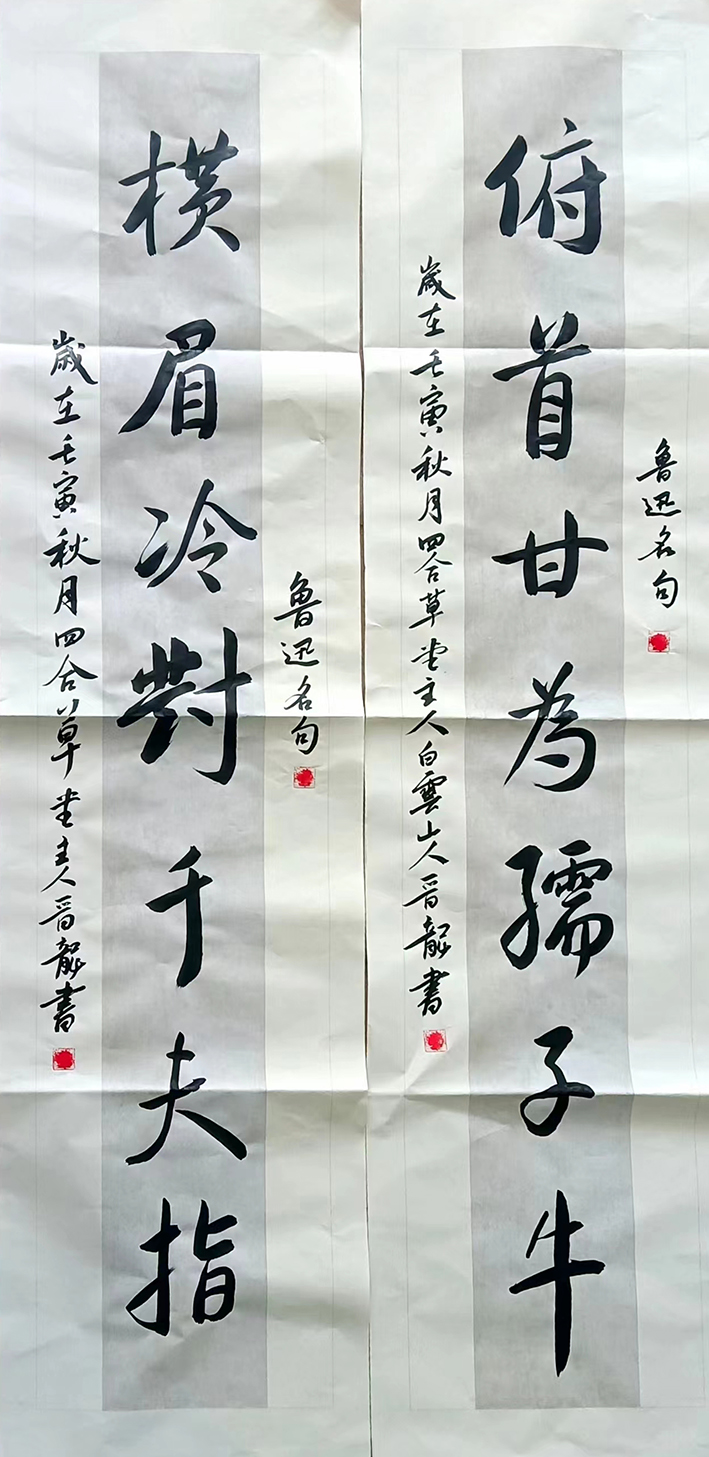 鲁迅名句
俯首甘为孺子牛
歲在壬寅秋月四合草堂主人白雲山人晋龍書
鲁迅名句
横眉冷對千夫指
歲在壬寅秋月四合草堂主人晋龍書